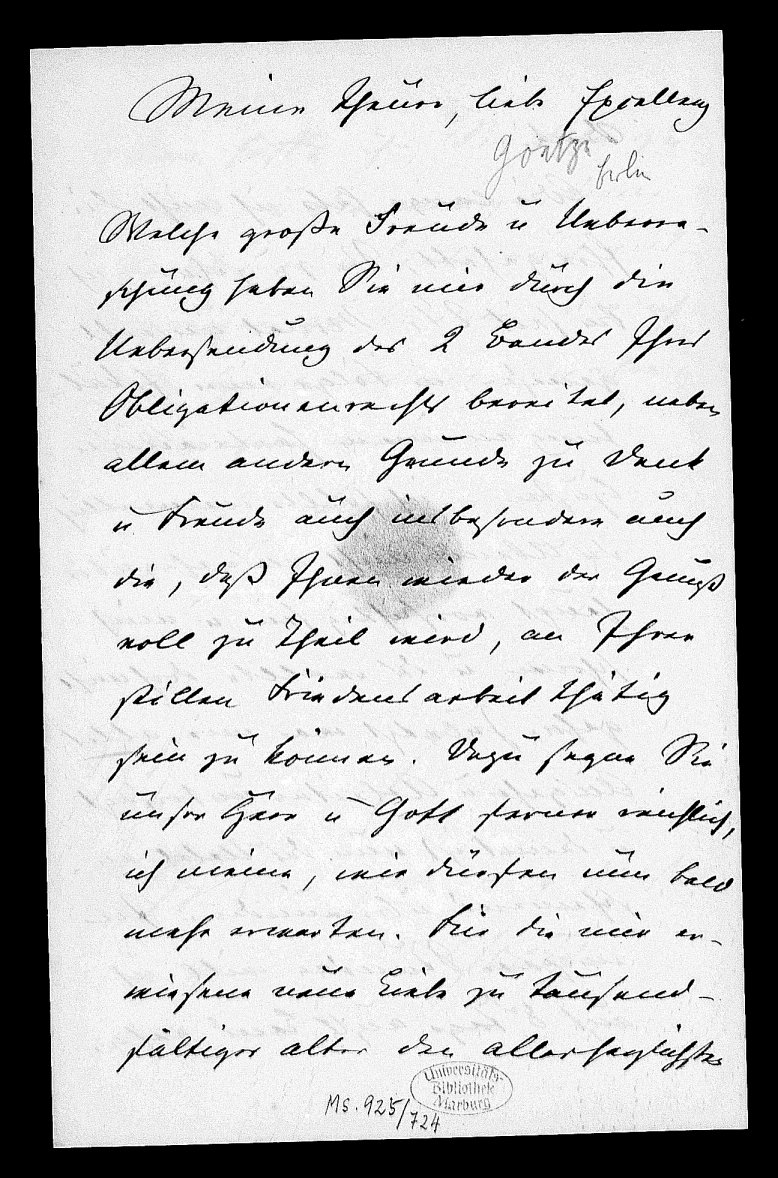 Meine theure, liebe Excellenz
Goetze
Berlin
Welche große Freude u Ueberra-
schung haben Sie mir durch die
Uebersendung des 2 Bandes Ihres
Obligationenrechts bereitet, neben
allem andern Grunde zu Dank
u Freude auch insbesondere auch
die, daß Ihnen wieder der Genuß
voll zu Theil wird, an Ihrer
stillen Friedensarbeit thätig
sein zu können. Dazu segne Sie
unser Herr u Gott ferner reichlich,
ich meine, wir dürfen nun bald
mehr erwarten. Für die mir er-
wiesene neue Liebe zu tausend-
fältiger alter den allerherzlichsten
Universitäts-
Bibliothek
Marburg
Ms. 925/724